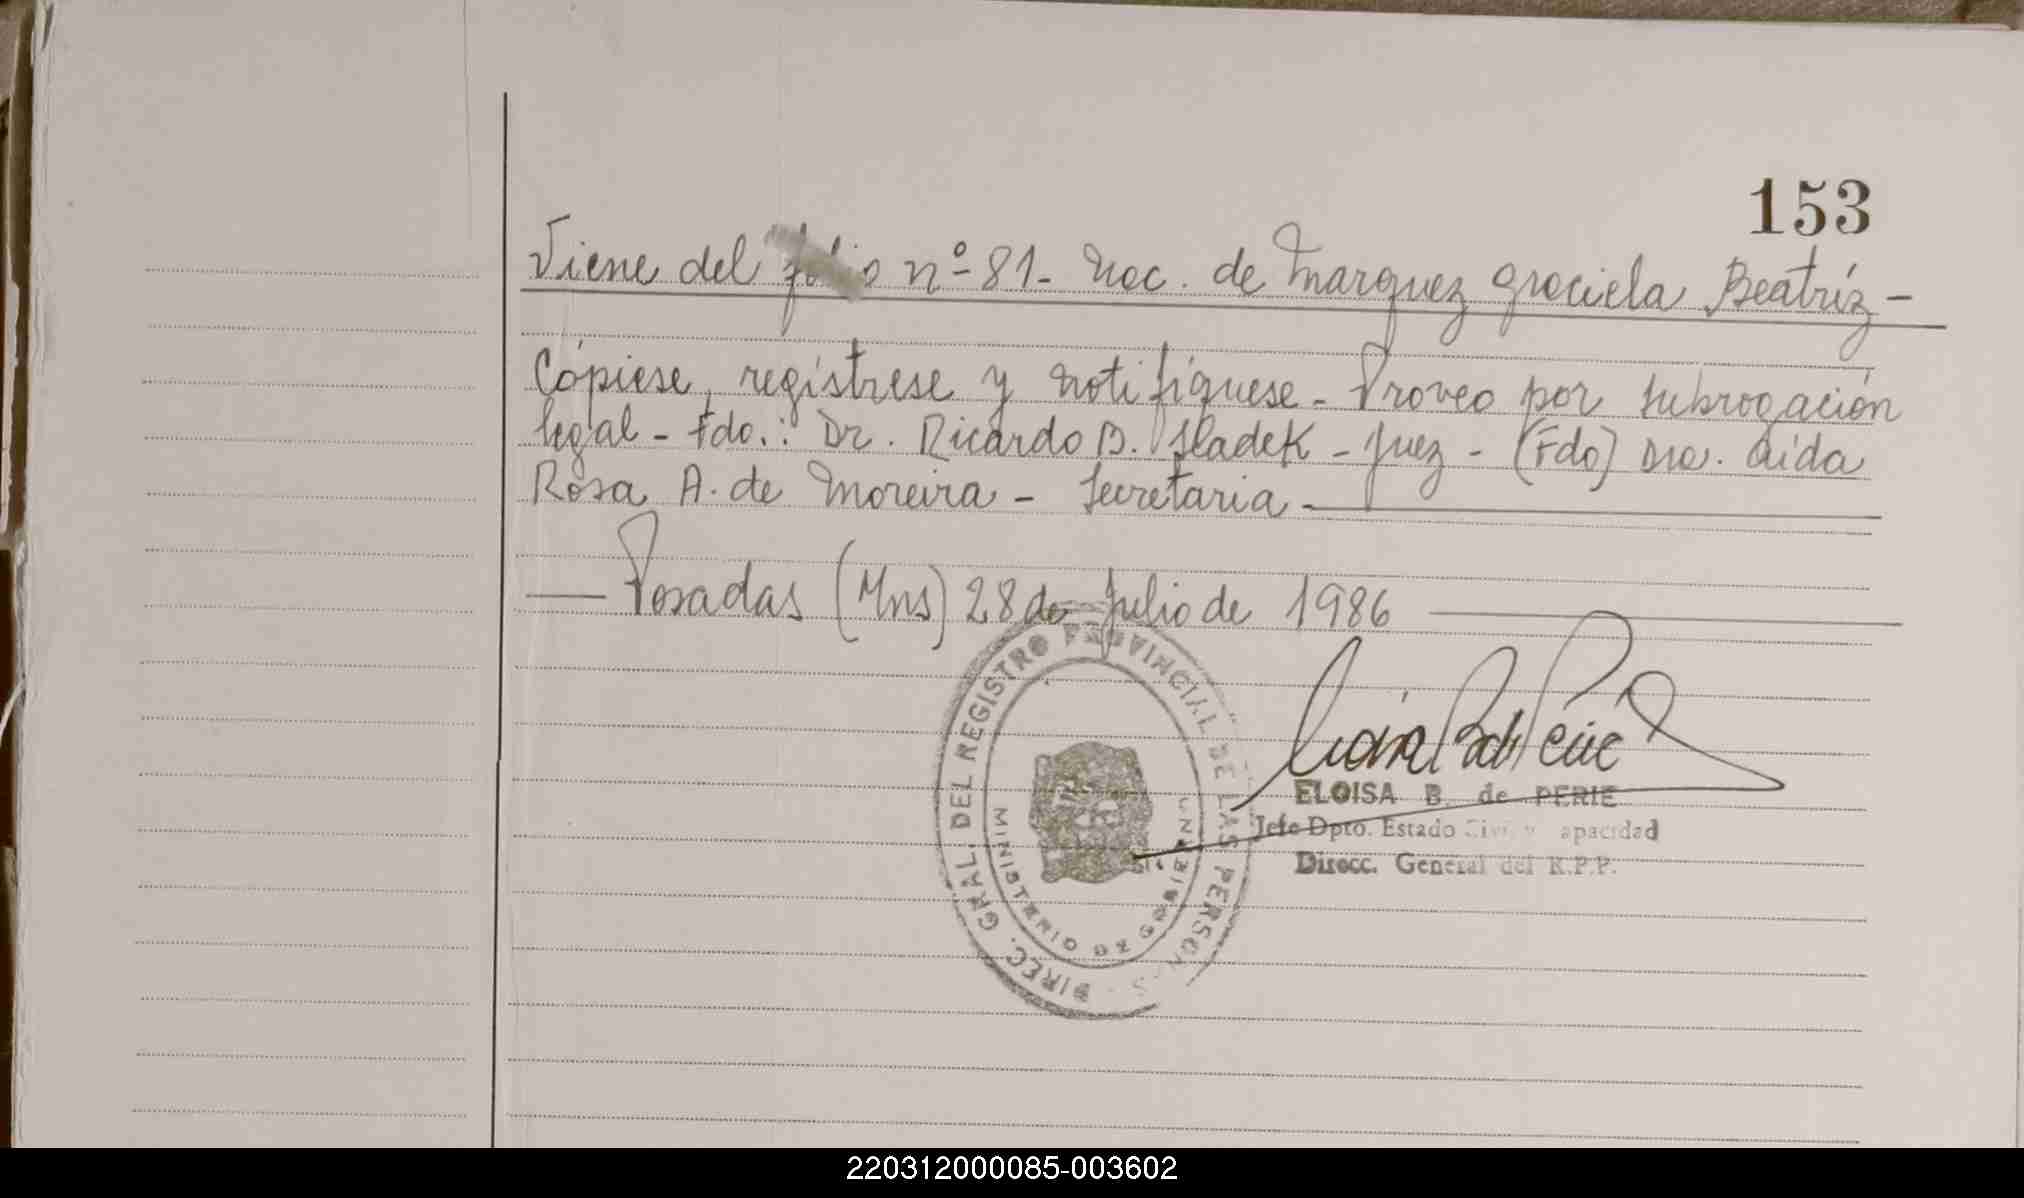 153
Viene del folio nº 81- Nac. de Marquez Graciela Beatríz -
Cópiese, regístrese y notifíquese - Proveo por subrogación
legal - Fdo.: Dr. Ricardo B. Sladek - Juez - (Fdo) Dra. Aída
Rosa A. de Moreira - Secretaria -
— Posadas (Mns) 28 de Julio de 1986
DIREC. GRAL. DEL REGISTRO PROVINCIAL DE LAS PERSONAS
MINISTERIO DE GOBIERNO
ELOISA B. de PERIE
Jefe Dpto. Estado Civil y Capacidad
Direcc. General del R.P.P.
220312000085-003602